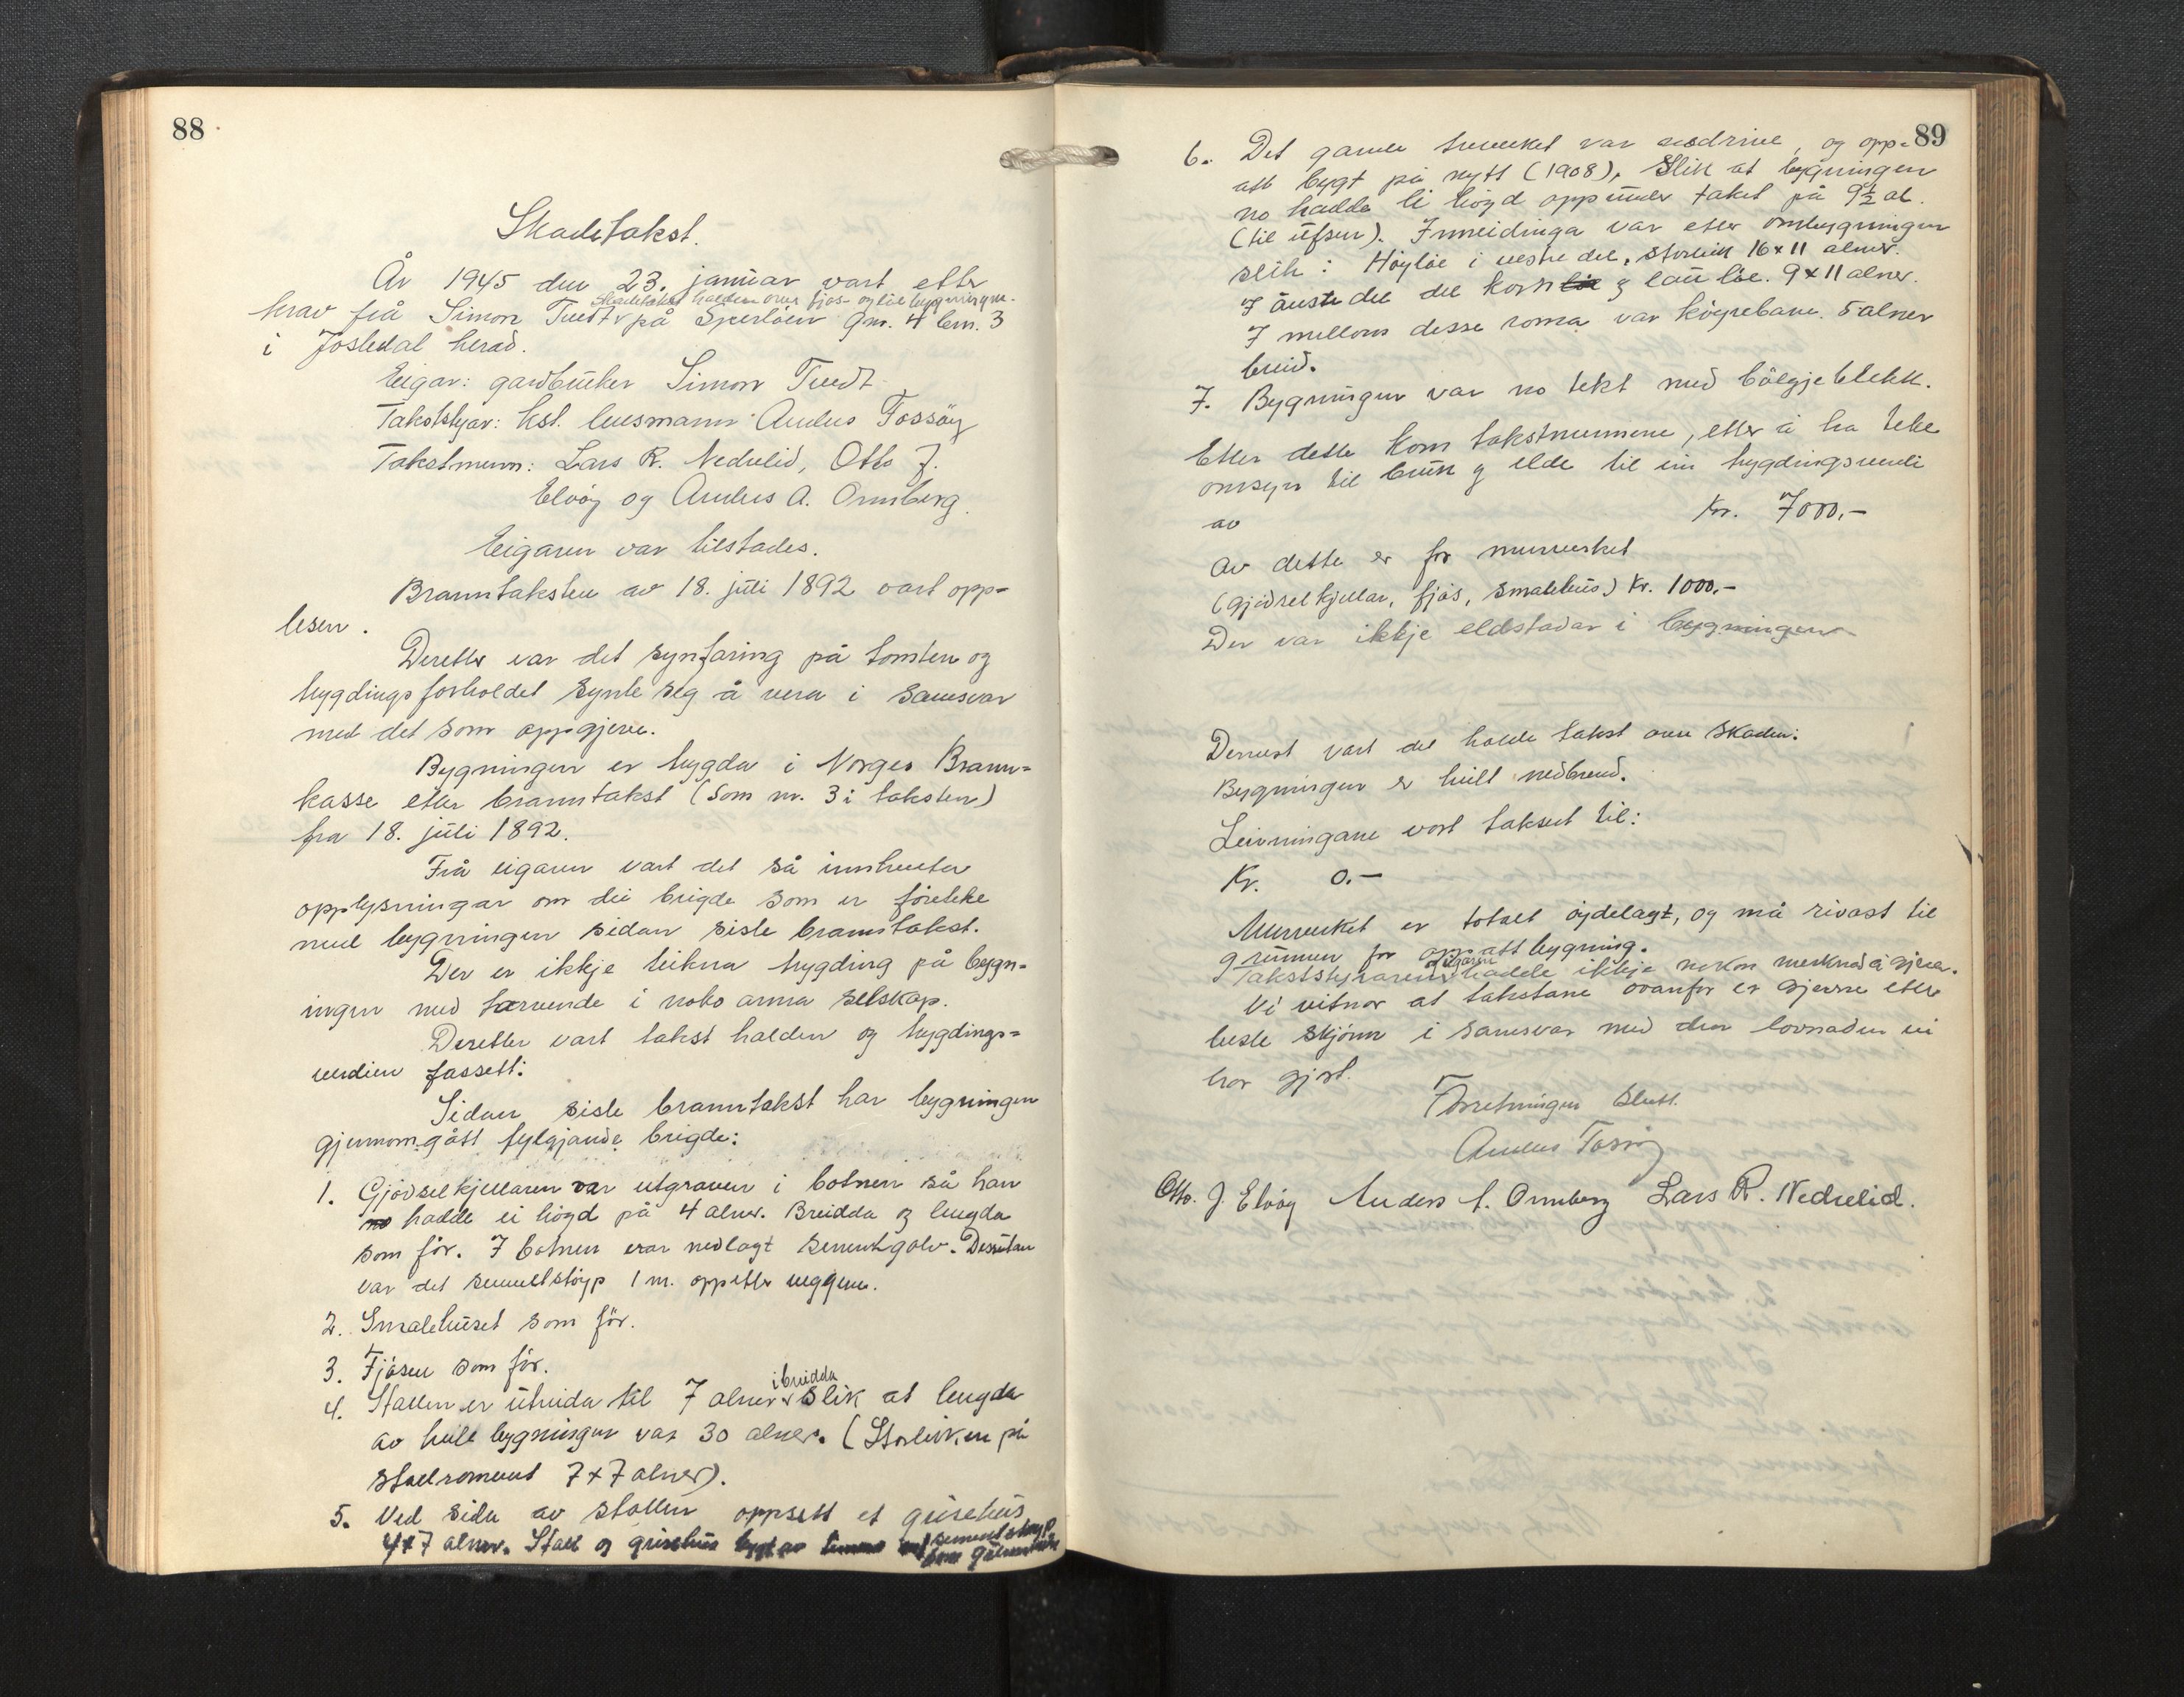 88
Skadetakst.
År 1945 den 23. januar vart etter
krav frå Simon Tuedt skadetakst halden over fjos- og löebygningen. på Sperlöen gnr. 4 bnr. 3
i Jostedal herad.
Eigar: gardbruker Simon Tuedt
Takststyrar: kst. lensmann Anders Fossöy
Takstmenn: Lars R. Nedrelid, Otto J.
Elvöy og Anders A. Ormberg.
Eigaren var tilstades.
Branntaksten av 18. juli 1892 vart opp=
lesen.
Deretter var det synfaring på tomten og
trygdingsforholdet synte seg å vera i samsvar
med det som oppgjeve.
Bygningen er trygda i Norges Brann=
kasse etter branntakst (som nr. 3 i taksten)
fra 18. juli 1892.
Frå eigaren vart det så innhenta
opplysningar om dei brigde som er företeke
med bygningen sidan siste branntakst.
Der er ikkje teikna trygding på bygn=
ingen med tarvende i noko anna selskap.
Deretter vart takst halden og trygdings=
verdien fassett:
Sidan siste branntakst har bygningen
gjennomgått fylgjande brigde:
1. Gjödselkjellaren var utgraven i botnen så han
hadde ei högd på 4 alner. Breidda og lengda
som för. I botnen var nedlagt sementgolv. Dessutan
var det sementstöyp 1 m. oppetter veggene.
2. Smalehuset som för.
3. Fjösen som för.
4. Stallen er utvida til 7 alner i breidda slik at lengda
av heile bygningen var 30 alner. (Storleiken på
stallromment 7x7 alner).
5. Ved sida av stallen oppsett et grisehus
4x7 alner. Stall og grisehus bygt av sementstöyp
89
6. Det gamle treverket var nedrive, og opp=
att bygt på nytt (1908), slik at bygningen
no hadde ei högd oppunder taket på 9½ al.
(til ufsen). Innreidinga var etter ombygningen
slik: Höylöe i vestre del, storleik 16x11 alner.
I austre del del korn og lauvlöe. 9x11 alner.
I mellom desse roma var köyrebane. 5 alner
breid.
7. Bygningen var no tekt med bölgjeblekk.
Etter dette kom takstmennene, etter å ha teke
omsyn til bruk og elde til ein trygdingsverdi
av Kr. 7000,-
Av dette er for murverket
(gjödselkjellar, fjös, smalehus) Kr. 1000,-
Der var ikkje eldstadar i bygningen
Dernest vart det halde takst over skaden:
Bygningen er heilt nedbrend.
Leivningane vart taksert til:
Kr. 0.-
Murverket er totalt öydelagt, og må rivast til
grunnen for oppattbygning.
Takststyraren eigaren hadde ikkje nokon merknad å gjera.
Vi vitnar at takstane ovanfor er gjevne etter
beste skjönn i samsvar med den lovnaden vi
har gjort.
Forretningen slutt.
Anders Fossöy
Otto. J. Elvöy Anders A. Ormberg Lars R. Nedrelid.